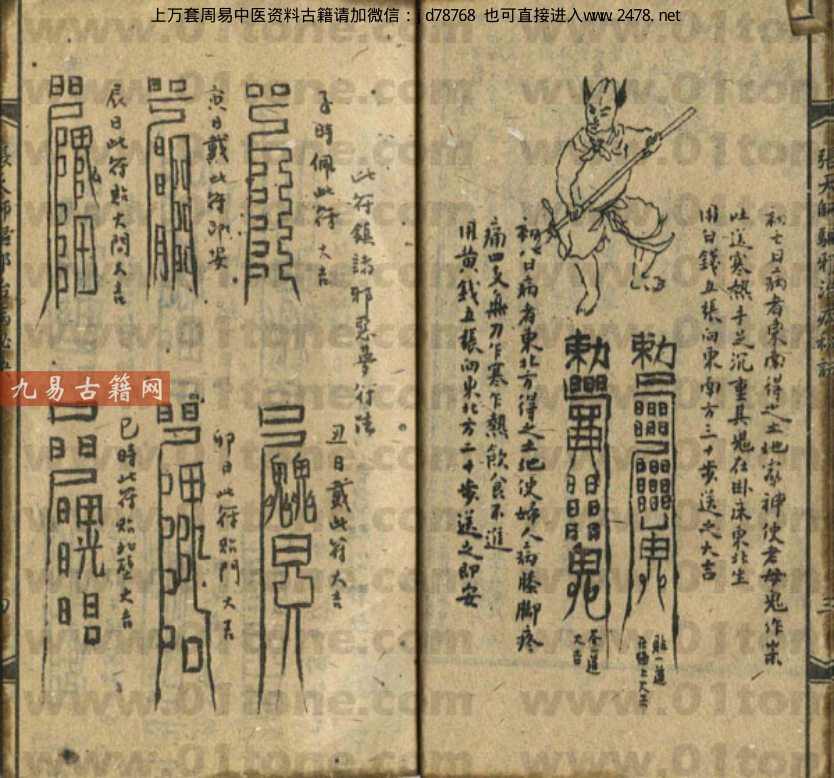 上万套周易中医资料古籍请加微信：d78768 也可直接进入www.2478.net
初七日病者東南得之土地家神使老母鬼作祟
吐逆寒熱手足沉重其鬼在卧床東北坐
用白錢五張向東南方三十步送之大吉
初八日病者東北方得之土地使婦人病膝脚疼
痛四支無力乍寒乍熱飲食不進
用黄錢五張向東北方二十步送之即安
勅
貼一道
勅
鬼
吞一道
大吉
此符鎮諸邪惡夢行法
子時佩此符 大吉
丑日戴此符大吉
寅日戴此符即安
卯日此符貼門 大吉
辰日此符貼大門大吉
巳時此符貼北壁大吉
九易古籍网
www.01tone.com